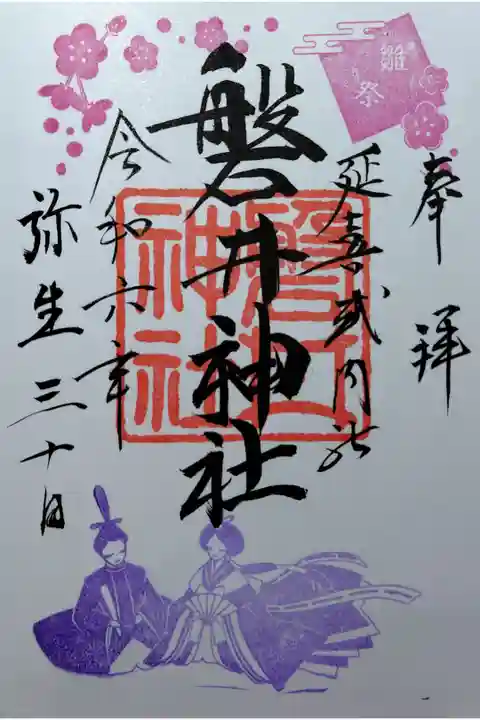 雛祭
奉拝
延喜式内社
磐井神社
磐井神社
令和六年
弥生三十日